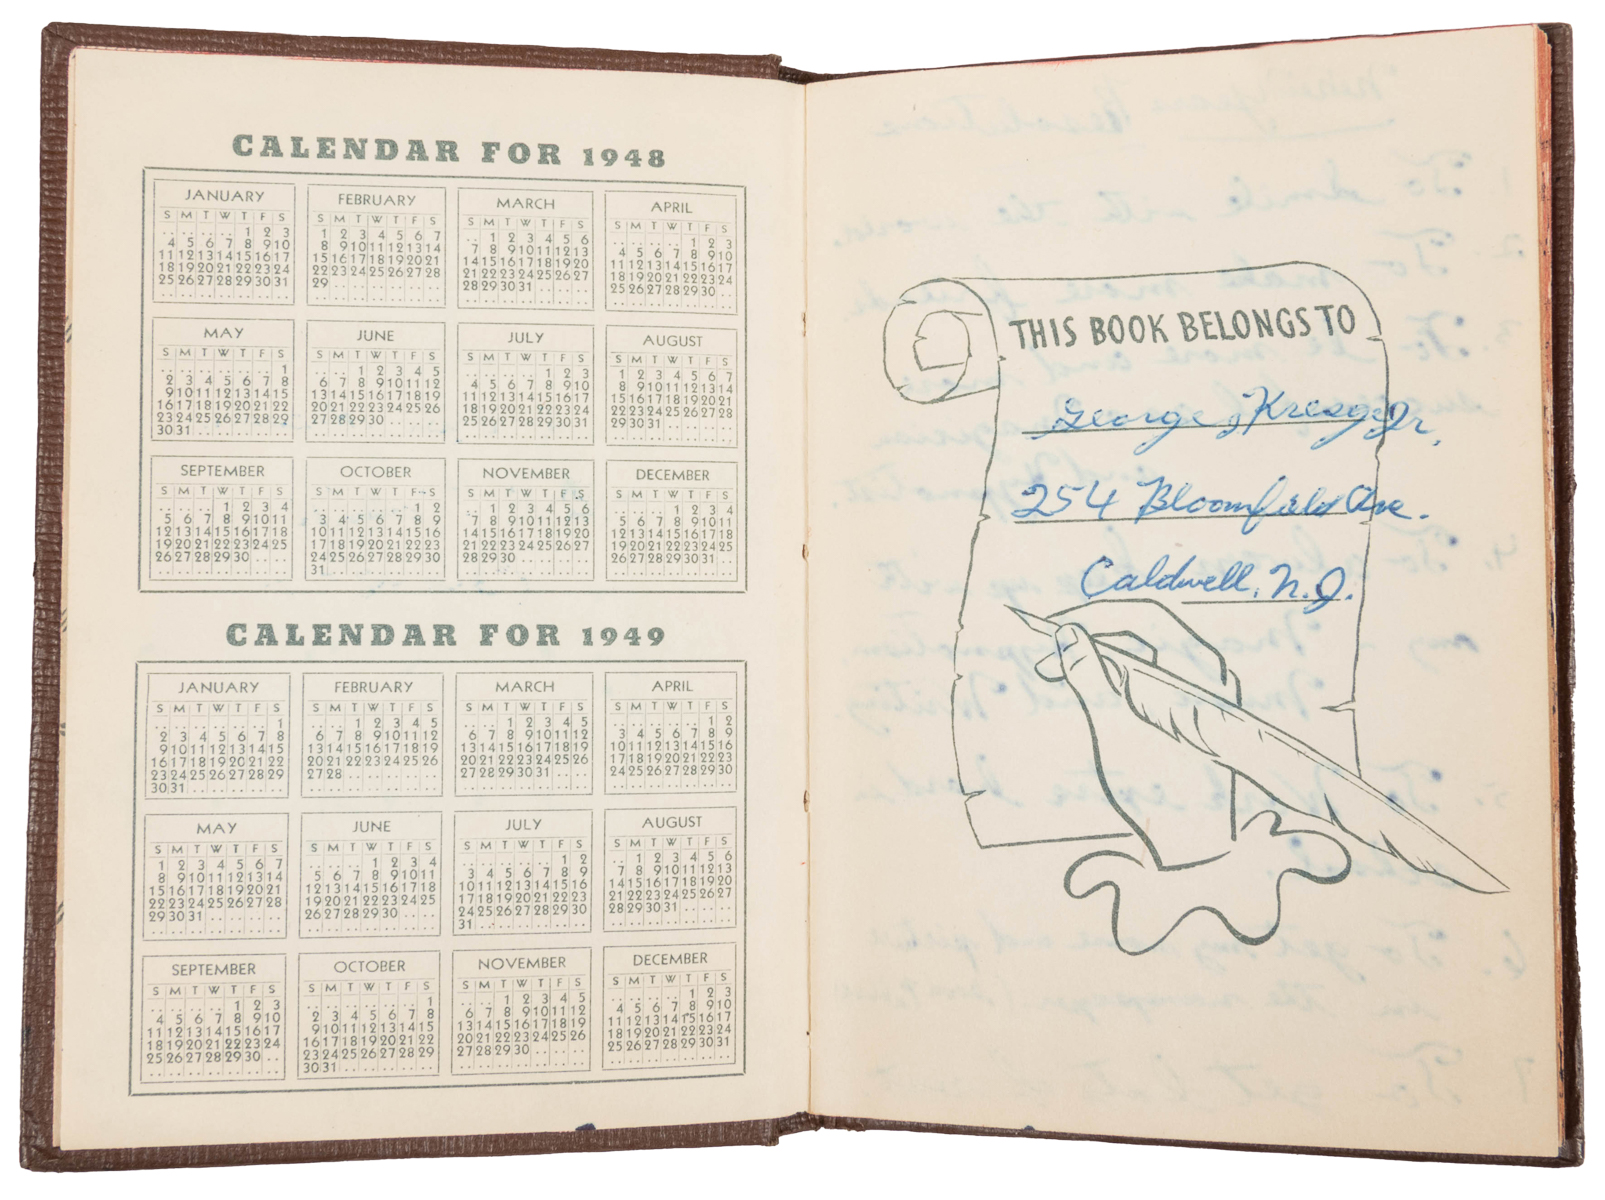 CALENDAR FOR 1948
JANUARY
S M T W T F S
1 2 3
4 5 6 7 8 9 10
11 12 13 14 15 16 17
18 19 20 21 22 23 24
25 26 27 28 29 30 31
FEBRUARY
S M T W T F S
1 2 3 4 5 6 7
8 9 10 11 12 13 14
15 16 17 18 19 20 21
22 23 24 25 26 27 28
29
MARCH
S M T W T F S
1 2 3 4 5 6
7 8 9 10 11 12 13
14 15 16 17 18 19 20
21 22 23 24 25 26 27
28 29 30 31
APRIL
S M T W T F S
1 2 3
4 5 6 7 8 9 10
11 12 13 14 15 16 17
18 19 20 21 22 23 24
25 26 27 28 29 30
MAY
S M T W T F S
1
2 3 4 5 6 7 8
9 10 11 12 13 14 15
16 17 18 19 20 21 22
23 24 25 26 27 28 29
30 31
JUNE
S M T W T F S
1 2 3 4 5
6 7 8 9 10 11 12
13 14 15 16 17 18 19
20 21 22 23 24 25 26
27 28 29 30
JULY
S M T W T F S
1 2 3
4 5 6 7 8 9 10
11 12 13 14 15 16 17
18 19 20 21 22 23 24
25 26 27 28 29 30 31
AUGUST
S M T W T F S
1 2 3 4 5 6 7
8 9 10 11 12 13 14
15 16 17 18 19 20 21
22 23 24 25 26 27 28
29 30 31
SEPTEMBER
S M T W T F S
1 2 3 4
5 6 7 8 9 10 11
12 13 14 15 16 17 18
19 20 21 22 23 24 25
26 27 28 29 30
OCTOBER
S M T W T F S
1 2
3 4 5 6 7 8 9
10 11 12 13 14 15 16
17 18 19 20 21 22 23
24 25 26 27 28 29 30
31
NOVEMBER
S M T W T F S
1 2 3 4 5 6
7 8 9 10 11 12 13
14 15 16 17 18 19 20
21 22 23 24 25 26 27
28 29 30
DECEMBER
S M T W T F S
1 2 3 4
5 6 7 8 9 10 11
12 13 14 15 16 17 18
19 20 21 22 23 24 25
26 27 28 29 30 31
CALENDAR FOR 1949
JANUARY
S M T W T F S
1
2 3 4 5 6 7 8
9 10 11 12 13 14 15
16 17 18 19 20 21 22
23 24 25 26 27 28 29
30 31
FEBRUARY
S M T W T F S
1 2 3 4 5
6 7 8 9 10 11 12
13 14 15 16 17 18 19
20 21 22 23 24 25 26
27 28
MARCH
S M T W T F S
1 2 3 4 5
6 7 8 9 10 11 12
13 14 15 16 17 18 19
20 21 22 23 24 25 26
27 28 29 30 31
APRIL
S M T W T F S
1 2
3 4 5 6 7 8 9
10 11 12 13 14 15 16
17 18 19 20 21 22 23
24 25 26 27 28 29 30
MAY
S M T W T F S
1 2 3 4 5 6 7
8 9 10 11 12 13 14
15 16 17 18 19 20 21
22 23 24 25 26 27 28
29 30 31
JUNE
S M T W T F S
1 2 3 4
5 6 7 8 9 10 11
12 13 14 15 16 17 18
19 20 21 22 23 24 25
26 27 28 29 30
JULY
S M T W T F S
1 2
3 4 5 6 7 8 9
10 11 12 13 14 15 16
17 18 19 20 21 22 23
24 25 26 27 28 29 30
31
AUGUST
S M T W T F S
1 2 3 4 5 6
7 8 9 10 11 12 13
14 15 16 17 18 19 20
21 22 23 24 25 26 27
28 29 30 31
SEPTEMBER
S M T W T F S
1 2 3
4 5 6 7 8 9 10
11 12 13 14 15 16 17
18 19 20 21 22 23 24
25 26 27 28 29 30
OCTOBER
S M T W T F S
1
2 3 4 5 6 7 8
9 10 11 12 13 14 15
16 17 18 19 20 21 22
23 24 25 26 27 28 29
30 31
NOVEMBER
S M T W T F S
1 2 3 4 5
6 7 8 9 10 11 12
13 14 15 16 17 18 19
20 21 22 23 24 25 26
27 28 29 30
DECEMBER
S M T W T F S
1 2 3
4 5 6 7 8 9 10
11 12 13 14 15 16 17
18 19 20 21 22 23 24
25 26 27 28 29 30 31
THIS BOOK BELONGS TO
George J Kresge Jr.
254 Bloomfield Ave.
Caldwell, N.J.